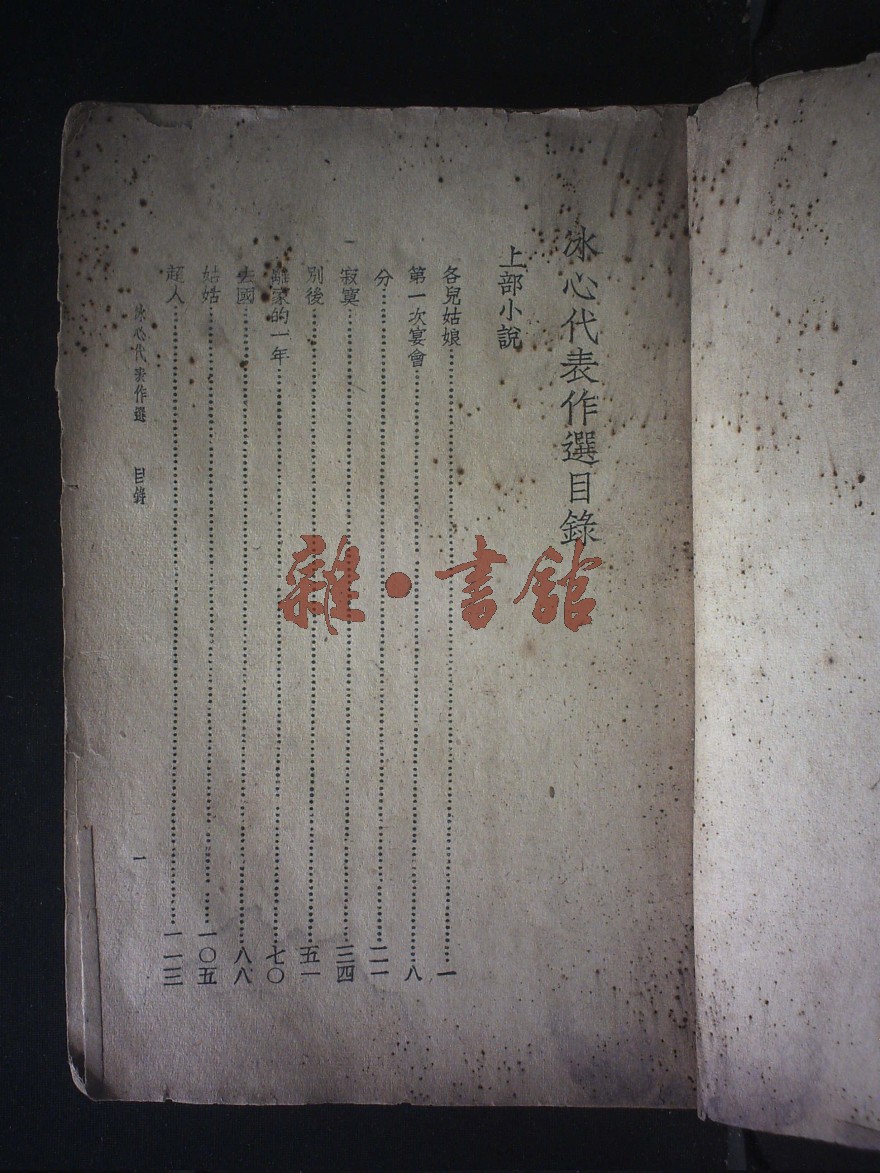 冰心代表作選目錄
上部小說
各兒姑娘…………一
第一次宴會…………八
分…………二一
寂寞…………三四
別後…………五一
離家的一年…………七〇
去國…………八八
姑姑…………一〇五
超人…………一一三
冰心代表作選 目錄 一
雜·書館